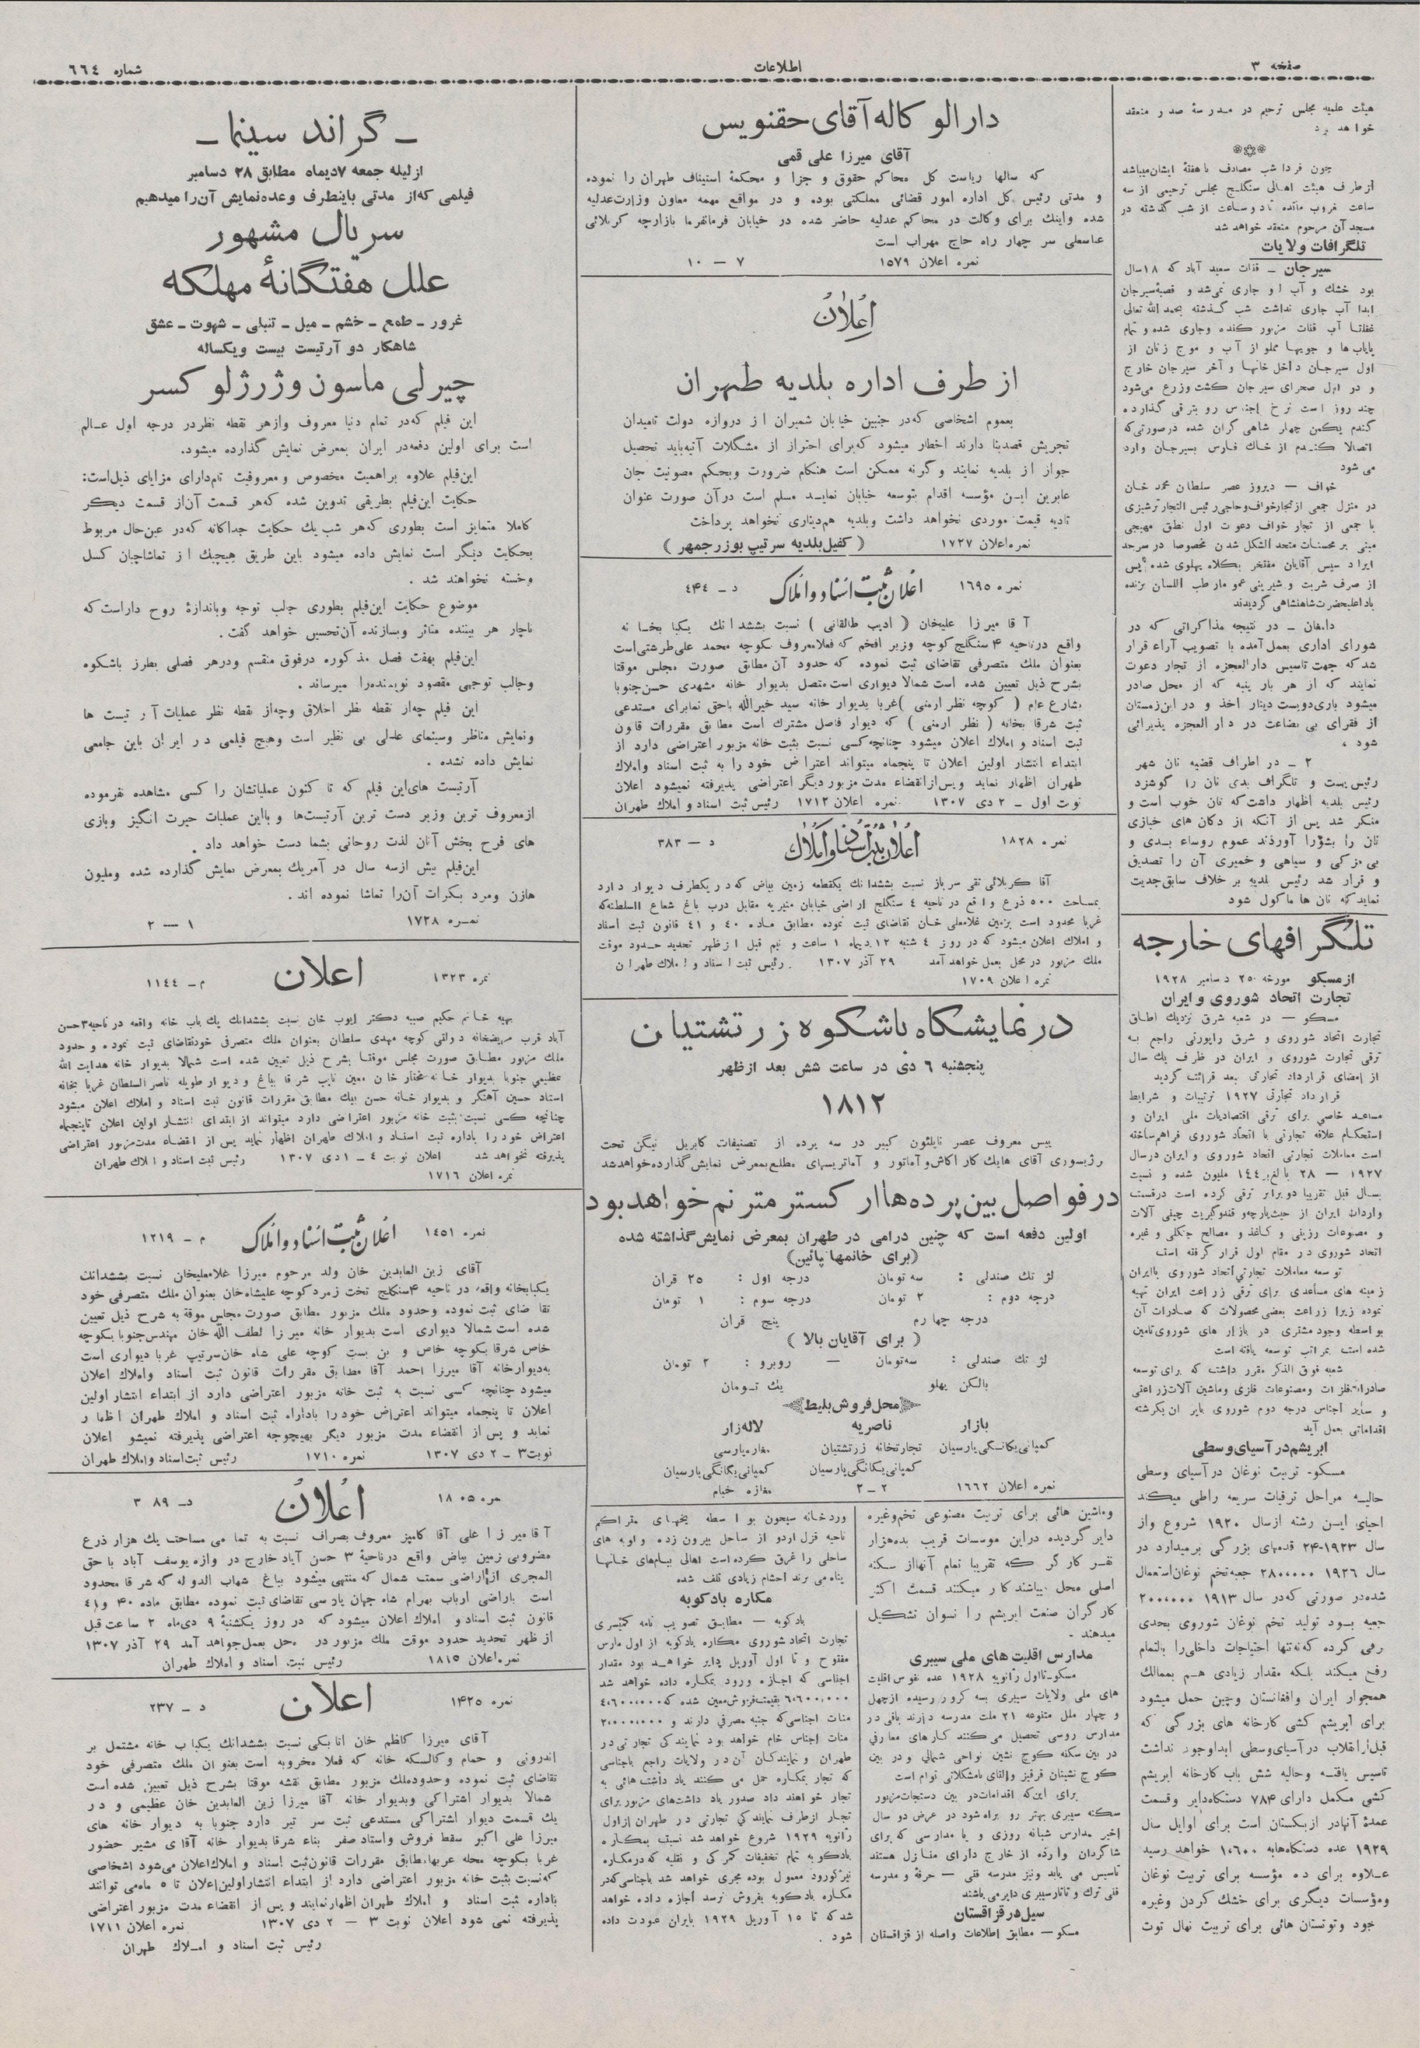 صفحه ۳
اطلاعات
شماره ٦٦٤
هیئت علمیه مجلس ترحیم در مدرسهٔ صدر منعقد
خواهد
چون فردا شب مصادف با هفتهٔ ایشان میباشد
از طرف هیئت اهالی سنگلج مجلس ترحیمی از سه
ساعت غروب مانده تا دو ساعت از شب گذشته در
مسجد آن مرحوم منعقد خواهد شد
تلگرافات ولایات
سیرجان ــ قنات سعید آباد که ۱۸ سال
بود خشك و آب او جاری نمی‌شد و قصبهٔ سیرجان
ابدا آب جاری نداشت شب گذشته بحمد الله تعالی
غفلتا آب قنات مزبور کنده وجاری شده و تمام
پایاب ها و جویها مملو از آب و موج زنان از
اول سیرجان داخل خانها و آخر سیرجان خارج
و در اول صحرای سیرجان کشت وزرع می‌شود
چند روز است نرخ اجناس رو بترقی گذارده
گندم یکمن چهار شاهی گران شده درصورتی‌که
اتصالا گندم از خاك فارس بسیرجان وارد
می شود
خواف ــ دیروز عصر سلطان محمد خان
در منزل جمعی از تجار خواف و حاجی رئیس التجار ترشیزی
با جمعی از تجار خواف دعوت اول نطق مهیجی
مبنی بر محسنات متحد الشکل شدن مخصوصا در سرحد
ایراد سپس آقایان مفتخر بکلاه پهلوی شده پس
از صرف شربت و شیرینی عموما رطب اللسان بزنده
باد اعلیحضرت شاهنشاهی گردیدند
دامغان ــ در نتیجه مذاکراتی که در
شورای اداری بعمل آمده با تصویب آراء قرار
شد که جهت تاسیس دارالعجزه از تجار دعوت
نمایند که از هر بار پنبه که از محل صادر
میشود باری دویست دینار اخذ و در این زمستان
از فقرای بی بضاعت در دار العجزه پذیرائی
شود .
۲ ــ در اطراف قضیه نان شهر
رئیس پست و تلگراف بدی نان را گوشزد
رئیس بلدیه اظهار داشت که نان خوب است و
منکر شد پس از آنکه از دکان های خبازی
نان را بشورا آوردند عموم روساء بدی و
بی مزکی و سیاهی و خمیری آن را تصدیق
و قرار شد رئیس بلدیه بر خلاف سابق جدیت
نماید که نان ها ماکول شود
تلگرافهای خارجه
از مسکو مورخه ۲۵ دسامبر ۱۹۲۸
تجارت اتحاد شوروی و ایران
مسکو ــ در شعبه شرق نزدیك اطاق
تجارت اتحاد شوروی و شرق راپورتی راجع به
ترقی تجارت شوروی و ایران در ظرف یك سال
از امضای قرارداد تجارتی بعد قرائت گردید
قرارداد تجارتی ۱۹۲۷ ترتیبات و شرایط
مساعد خاصی برای ترقی اقتصادیات ملی ایران و
استحکام علاقه تجارتی با اتحاد شوروی فراهم ساخته
است معاملات تجارتی اتحاد شوروی و ایران در سال
۱۹۲۷ ــ ۲۸ بالغ بر ١٤٤ ملیون شده و نسبت
بسال قبل تقریبا دو برابر ترقی کرده است در قسمت
واردات ایران از حیث پارچه و قند و کبریت چینی آلات
و مصنوعات رزینی و کاغذ و مصالح جنگلی و غیره
اتحاد شوروی در مقام اول قرار گرفته است
توسعه معاملات تجارتی اتحاد شوروی با ایران
زمینه های مساعدی برای ترقی زراعت ایران تهیه
نموده زیرا زراعت بعضی محصولات که صادرات آن
بواسطه وجود مشتری در بازار های شوروی تامین
شده است بمراتب توسعه یافته است
شعبه فوق الذکر مقرر داشت که برای توسعه
صادرات فلزات و مصنوعات فلزی و ماشین آلات زراعتی
و سایر اجناس درجه دوم شوروی بایران یکرشته
اقداماتی بعمل آید
ابریشم در آسیای وسطی
مسکو ــ تربیت نوغان در آسیای وسطی
حالیه مراحل ترقیات سریعه راطی میکند
احیای این رشته از سال ۱۹۲۰ شروع و از
سال ۱۹۲۳-۲۴ قدمهای بزرگی برمیدارد در
سال ۱۹۲۶ ۲۸۰۰۰۰ جعبه تخم نوغان استعمال
شده در صورتی که در سال ۱۹۱۳ ۲۰۰۰۰۰
جعبه بود تولید تخم نوغان شوروی بحدی
رقی کرده که نه تنها احتیاجات داخلی را بالتمام
رفع میکند بلکه مقدار زیادی هم بممالك
همجوار ایران و افغانستان و چین حمل میشود
برای ابریشم کشی کارخانه های بزرگی که
قبل از انقلاب در آسیای وسطی ابدا وجود نداشت
تاسیس یافته و حالیه شش باب کارخانه ابریشم
کشی مکمل دارای ۷۸۴ دستگاه دایر و قسمت
عمدهٔ آنها در ازبکستان است برای اوایل سال
۱۹۲۹ عده دستگاه ها به ۱۰۶۰۰ خواهد رسید
علاوه برای ده مؤسسه برای تربیت نوغان
و مؤسسات دیگری برای خشك کردن و غیره
جود و توتستان هائی برای تربیت نهال توت
دارالوکاله آقای حقنویس
آقای میرزا علی قمی
که سالها ریاست کل محاکم حقوق و جزا و محکمهٔ استیناف طهران را نموده
و مدتی رئیس کل اداره امور قضائی مملکتی بوده و در مواقع مهمه معاون وزارت عدلیه
شده و اینك برای وکالت در محاکم عدلیه حاضر شده در خیابان فرمانفرما بازارچه کربلائی
عباسعلی سر چهار راه حاج مهراب است
نمره اعلان ۱۵۷۹
۷ ــ ۱۰
اعلان
از طرف اداره بلدیه طهران
بعموم اشخاصی که در جنبین خیابان شمیران از دروازه دولت تامیدان
تجریش قصد بنا دارند اخطار میشود که برای احتراز از مشکلات آتیه باید تحصیل
جواز از بلدیه نمایند و گرنه ممکن است هنگام ضرورت وبحکم مصونیت جان
عابرین این مؤسسه اقدام بتوسعه خیابان نماید مسلم است در آن صورت عنوان
تادیه قیمت موردی نخواهد داشت و بلدیه هم دیناری نخواهد پرداخت
نمره اعلان ۱۷۲۷
( کفیل بلدیه سرتیپ بوزرجمهر )
نمره ۱۶۹۵
اعلان ثبت اسناد و املاک
د ــ ۴۴۴
آقا میرزا علیخان ( ادیب طالقانی ) نسبت بششدانك یکبابخانه
واقع در ناحیه ۴ سنگلج کوچه وزیر افخم که فعلا معروف بکوچه محمد علی طرشتی است
بعنوان ملك متصرفی تقاضای ثبت نموده که حدود آن مطابق صورت مجلس موقتا
بشرح ذیل تعیین شده است شمالا دیواری است متصل بدیوار خانه مشهدی حسن جنوبا
بشارع عام ( کوچه نظر ارمنی ) غربا بدیوار خانه سید خیرالله باحق نما برای مستدعی
ثبت شرقا بخانه ( نظر ارمنی ) که دیوار فاصل مشترك است مطابق مقررات قانون
ثبت اسناد و املاك اعلان میشود چنانچه کسی نسبت بثبت خانه مزبور اعتراضی دارد از
ابتداء انتشار اولین اعلان تا پنجماه میتواند اعتراض خود را به ثبت اسناد و املاك
طهران اظهار نماید و پس از انقضاء مدت مزبور دیگر اعتراضی پذیرفته نمیشود اعلان
نوبت اول ــ ۲ دی ۱۳۰۷ نمره اعلان ۱۷۱۲ رئیس ثبت اسناد و املاك طهران
نمره ۱۸۲۸
اعلان ثبت اسناد و املاک
د ــ ۳۸۳
آقا کربلائی تقی سرباز نسبت بششدانك یکقطعه زمین بیاض که در یکطرف دیوار دارد
بمساحت ۵۰۰ ذرع واقع در ناحیه ٤ سنگلج اراضی خیابان منیریه مقابل درب باغ شعاع السلطنه که
غربا محدود است بزمین غلامعلی خان تقاضای ثبت نموده مطابق ماده ۴۰ و ۴۱ قانون ثبت اسناد
و املاك اعلان میشود که در روز ٤ شنبه ۱۲ دیماه ۱ ساعت و نیم قبل از ظهر تحدید حدود موقت
ملك مزبور در محل بعمل خواهد آمد ۲۹ آذر ۱۳۰۷ رئیس ثبت اسناد و املاك طهران
نمره اعلان ۱۷۰۹
در نمایشگاه باشکوه زرتشتیان
پنجشنبه ۶ دی در ساعت شش بعد از ظهر
۱۸۱۲
پیس معروف عصر ناپلئون کبیر در سه پرده از تصنیفات کابریل نیگن تحت
رژیسوری آقای هایك کاراکاش و آماتور و آماتریسهای مطلع بمعرض نمایش گذارده خواهد شد
در فواصل بین پرده‌ها ارکستر مترنم خواهد بود
اولین دفعه است که چنین درامی در طهران بمعرض نمایش گذاشته شده
(برای خانمها پائین)
لژ تك صندلی : سه تومان درجه اول : ۲۵ قران
درجه دوم : ۲ تومان درجه سوم : ۱ تومان
درجه چهارم پنج قران
( برای آقایان بالا )
لژ تك صندلی : سه تومان ــ روبرو : ۲ تومان
بالکن پهلو یك تومان
محل فروش بلیط
بازار ناصریه لاله‌زار
کمپانی یگانگی پارسیان تجارتخانه زرتشتیان مغازه پارسی
کمپانی یگانگی پارسیان کمپانی یگانگی پارسیان
نمره اعلان ۱۶۶۲ ۲ــ۲ مغازه خیام
و ماشین هائی برای تربیت مصنوعی تخم و غیره
دایر گردیده در این موسسات قریب بده هزار
نفر کارگر که تقریبا تمام آنها از سکنه
اصلی محل میباشند کار میکنند قسمت اکثر
کارگران صنعت ابریشم را نسوان تشکیل
میدهند .
مدارس اقلیت های ملی سیبری
مسکو ــ تا اول ژانویه ۱۹۲۸ عده نفوس اقلیت
های ملی ولایات سیبری بسه کرور رسیده از چهل
و چهار ملل متنوعه ۲۱ ملت مدرسه دارند باقی در
مدارس روسی تحصیل می‌کنند کارهای معارفی
در بین سکنه کوچ نشین نواحی شمالی و در بین
کوچ نشینان قرقیز و القای با مشکلاتی توام است
برای این‌که اقدامات در بین دستجات مزبور
سکنه سیبری بهتر رو براه شود در عرض دو سال
اخیر مدارس شبانه روزی و یا مدارسی که برای
شاگردان وارده از خارج دارای منازل هستند
تاسیس می یابد و نیز مدرسه فنی ــ حرفهٔ و مدرسه
فنی ترك و تاتار سیبری دایر می باشند
سیل در قزاقستان
مسکو ــ مطابق اطلاعات واصله از قزاقستان
ورد خانه سیحون بواسطه یخهای متراکم
ناحیه قزل اردو از ساحل بیرون زده و اوبه های
ساحلی را غرق کرده است اهالی ببام‌های خانهها
پناه می برند احشام زیادی تلف شده
مکاره بادکوبه
بادکوبه ــ مطابق تصویب نامه کمیسری
تجارت اتحاد شوروی مکاره بادکوبه از اول مارس
مفتوح و تا اول آوریل دایر خواهد بود مقدار
اجناسی که اجازه ورود بمکاره داده خواهد شد
۶،۶۰۰،۰۰۰ بقیمت فروش معین شده که ۴،۶۰۰،۰۰۰
منات اجناسی که جنبه مصرفی دارند و ۲،۰۰۰،۰۰۰
منات اجناس خام خواهد بود نمایندگی تجارتی در
طهران و نمایندگان آن در ولایات راجع باجناسی
که تجار بمکاره حمل می کنند یاد داشت هائی به
تجار خواهند داد صدور یاد داشت‌های مزبور برای
تجار از طرف نمایندگی تجارتی در طهران از اول
ژانویه ۱۹۲۹ شروع خواهد شد نسبت بمکاره
بادکوبه تمام تخفیفات گمرکی و نقلیه که در مکاره
نیژگورود معمول بوده مجری خواهد شد باجناسی که در
مکاره بادکوبه بفروش نرسد اجازه داده خواهد
شد که تا ۱۵ آوریل ۱۹۲۹ بایران عودت داده
شود .
ــ گراند سینما ــ
از لیله جمعه ۷ دیماه مطابق ۲۸ دسامبر
فیلمی که از مدتی باینطرف وعده نمایش آن را میدهیم
سریال مشهور
علل هفتگانهٔ مهلکه
غرور ــ طمع ــ خشم ــ میل ــ تنبلی ــ شهوت ــ عشق
شاهکار دو آرتیست بیست و یکساله
چیرلی ماسون و ژرژ لوکسر
این فیلم که در تمام دنیا معروف و از هر نقطه نظر در درجه اول عالم
است برای اولین دفعه در ایران بمعرض نمایش گذارده میشود.
این فیلم علاوه بر اهمیت مخصوص و معروفیت تام دارای مزایای ذیل است:
حکایت این فیلم بطریقی تدوین شده که هر قسمت آن از قسمت دیگر
کاملا متمایز است بطوری که هر شب یك حکایت جداگانه که در عین حال مربوط
بحکایت دیگر است نمایش داده میشود باین طریق هیچیك از تماشاچیان کسل
وخسته نخواهند شد .
موضوع حکایت این فیلم بطوری جالب توجه وباندازهٔ روح دار است که
ناچار هر بیننده متاثر و بسازنده آن تحسین خواهد گفت .
این فیلم بهفت فصل مذکوره در فوق منقسم ودر هر فصلی بطرز باشکوه
وجالب توجهی مقصود نویسنده را میرساند .
این فیلم چه از نقطه نظر اخلاق و چه از نقطه نظر عملیات آرتیست ها
ونمایش مناظر وسینمای عدلی بی نظیر است وهیچ فیلمی در ایران باین جامعی
نمایش داده نشده .
آرتیست های این فیلم که تا کنون عملیاتشان را کسی مشاهده نفرموده
از معروف ترین وزبر دست ترین آرتیست‌ها و با این عملیات حیرت انگیز و بازی
های فرح بخش آنان لذت روحانی بشما دست خواهد داد .
این فیلم بیش از سه سال در آمریك بمعرض نمایش گذارده شده وملیون
هازن ومرد بکرات آن را تماشا نموده اند .
نمره ۱۷۲۸
۱ ــ ۲
نمره ۱۳۲۳
اعلان
م ــ ۱۱۴۴
بهیه خانم حکیم صبیه دکتر ایوب خان نسبت بششدانك یك باب خانه واقعه در ناحیه ۳ حسن
آباد قرب مریضخانه دولتی کوچه مهدی سلطان بعنوان ملك متصرفی خود تقاضای ثبت نموده و حدود
ملك مزبور مطابق صورت مجلس موقتا بشرح ذیل تعیین شده است شمالا بدیوار خانه هدایت الله
عظیمی جنوبا بدیوار خانه مختار خان معین نایب شرقا بباغ و دیوار طویله ناصر السلطان غربا بخانه
استاد حسین آهنگر و بدیوار خانه حسن بیك مطابق مقررات قانون ثبت اسناد و املاك اعلان میشود
چنانچه کسی نسبت بثبت خانه مزبور اعتراضی دارد میتواند از ابتدای انتشار اولین اعلان تا پنجماه
اعتراض خود را باداره ثبت اسناد و املاك طهران اظهار نماید پس از انقضاء مدت مزبور اعتراضی
پذیرفته نخواهد شد اعلان نوبت ٤ ــ ۱ دی ۱۳۰۷ رئیس ثبت اسناد و املاك طهران
نمره اعلان ۱۷۱۶
نمره ۱۴۵۱
اعلان ثبت اسناد و املاک
م ــ ۱۲۱۹
آقای زین العابدین خان ولد مرحوم میرزا غلامعلیخان نسبت بششدانك
یکبابخانه واقعه در ناحیه ۴ سنگلج تخت زمرد کوچه علیشاه خان بعنوان ملك متصرفی خود
تقاضای ثبت نموده وحدود ملك مزبور مطابق صورت مجلس موقة به شرح ذیل تعیین
شده است شمالا دیواری است بدیوار خانه میرزا لطف الله خان مهندس جنوبا بکوچه
خاص شرقا بکوچه خاص و بن بست کوچه علی شاه خان سرتیپ غربا دیواری است
به دیوار خانه آقا میرزا احمد آقا مطابق مقررات قانون ثبت اسناد واملاك اعلان
میشود چنانچه کسی نسبت به ثبت خانه مزبور اعتراضی دارد از ابتداء انتشار اولین
اعلان تا پنجماه میتواند اعتراض خود را باداراء ثبت اسناد و املاك طهران اظهار
نماید و پس از انقضاء مدت مزبور دیگر بهیچوجه اعتراضی پذیرفته نمیشو اعلان
نوبت ۳ ــ ۲ دی ۱۳۰۷ نمره ۱۷۱۰ رئیس ثبت اسناد و املاك طهران
نمره ۱۸۰۵
اعلان
د ــ ۳۸۹
آقا میرزا علی آقا کامپز معروف بصراف نسبت به تمامی مساحت یك هزار ذرع
مضروبی زمین بیاض واقع در ناحیهٔ ۳ حسن آباد خارج دروازه یوسف آباد با حق
المجری از اراضی سمت شمال که منتهی میشود بباغ شهاب الدوله که شرقا محدود
است باراضی ارباب بهرام شاه جهان پارسی تقاضای ثبت نموده مطابق ماده ۴۰ و ۴۱
قانون ثبت اسناد و املاك اعلان میشود که در روز یکشنبهٔ ۹ دی ماه ۲ ساعت قبل
از ظهر تحدید حدود موقت ملك مزبور در محل بعمل خواهد آمد ۲۹ آذر ۱۳۰۷
نمره اعلان ۱۸۱۵ رئیس ثبت اسناد و املاك طهران
نمره ۱۴۲۵
اعلان
د ــ ۲۳۷
آقای میرزا کاظم خان اتابکی نسبت بششدانك یکباب خانه مشتمل بر
اندرونی و حمام و کالسکه خانه که فعلا مخروبه است بعنوان ملك متصرفی خود
تقاضای ثبت نموده وحدود ملك مزبور مطابق نقشه موقتا بشرح ذیل تعیین شده است
شمالا بدیوار اشتراکی و بدیوار خانه آقا میرزا زین العابدین خان عظیمی و در
یك قسمت دیوار اشتراکی مستدعی ثبت سر تیر دارد جنوبا به دیوار خانه های
میرزا علی اکبر سقط فروش و استاد صفر بناء شرقا بدیوار خانه آقای مشیر حضور
غربا بکوچه محله عربها مطابق مقررات قانون ثبت اسناد و املاك اعلان می‌شود اشخاصی
که نسبت بثبت خانه مزبور اعتراضی دارد از ابتداء انتشار اولین اعلان تا ۵ ماه می توانند
باداره ثبت اسناد و املاك طهران اظهار نمایند و پس از انقضاء مدت مزبور اعتراضی
پذیرفته نمی شود اعلان نوبت ۳ ــ ۲ دی ۱۳۰۷ نمره اعلان ۱۷۱۱
رئیس ثبت اسناد و املاك طهران